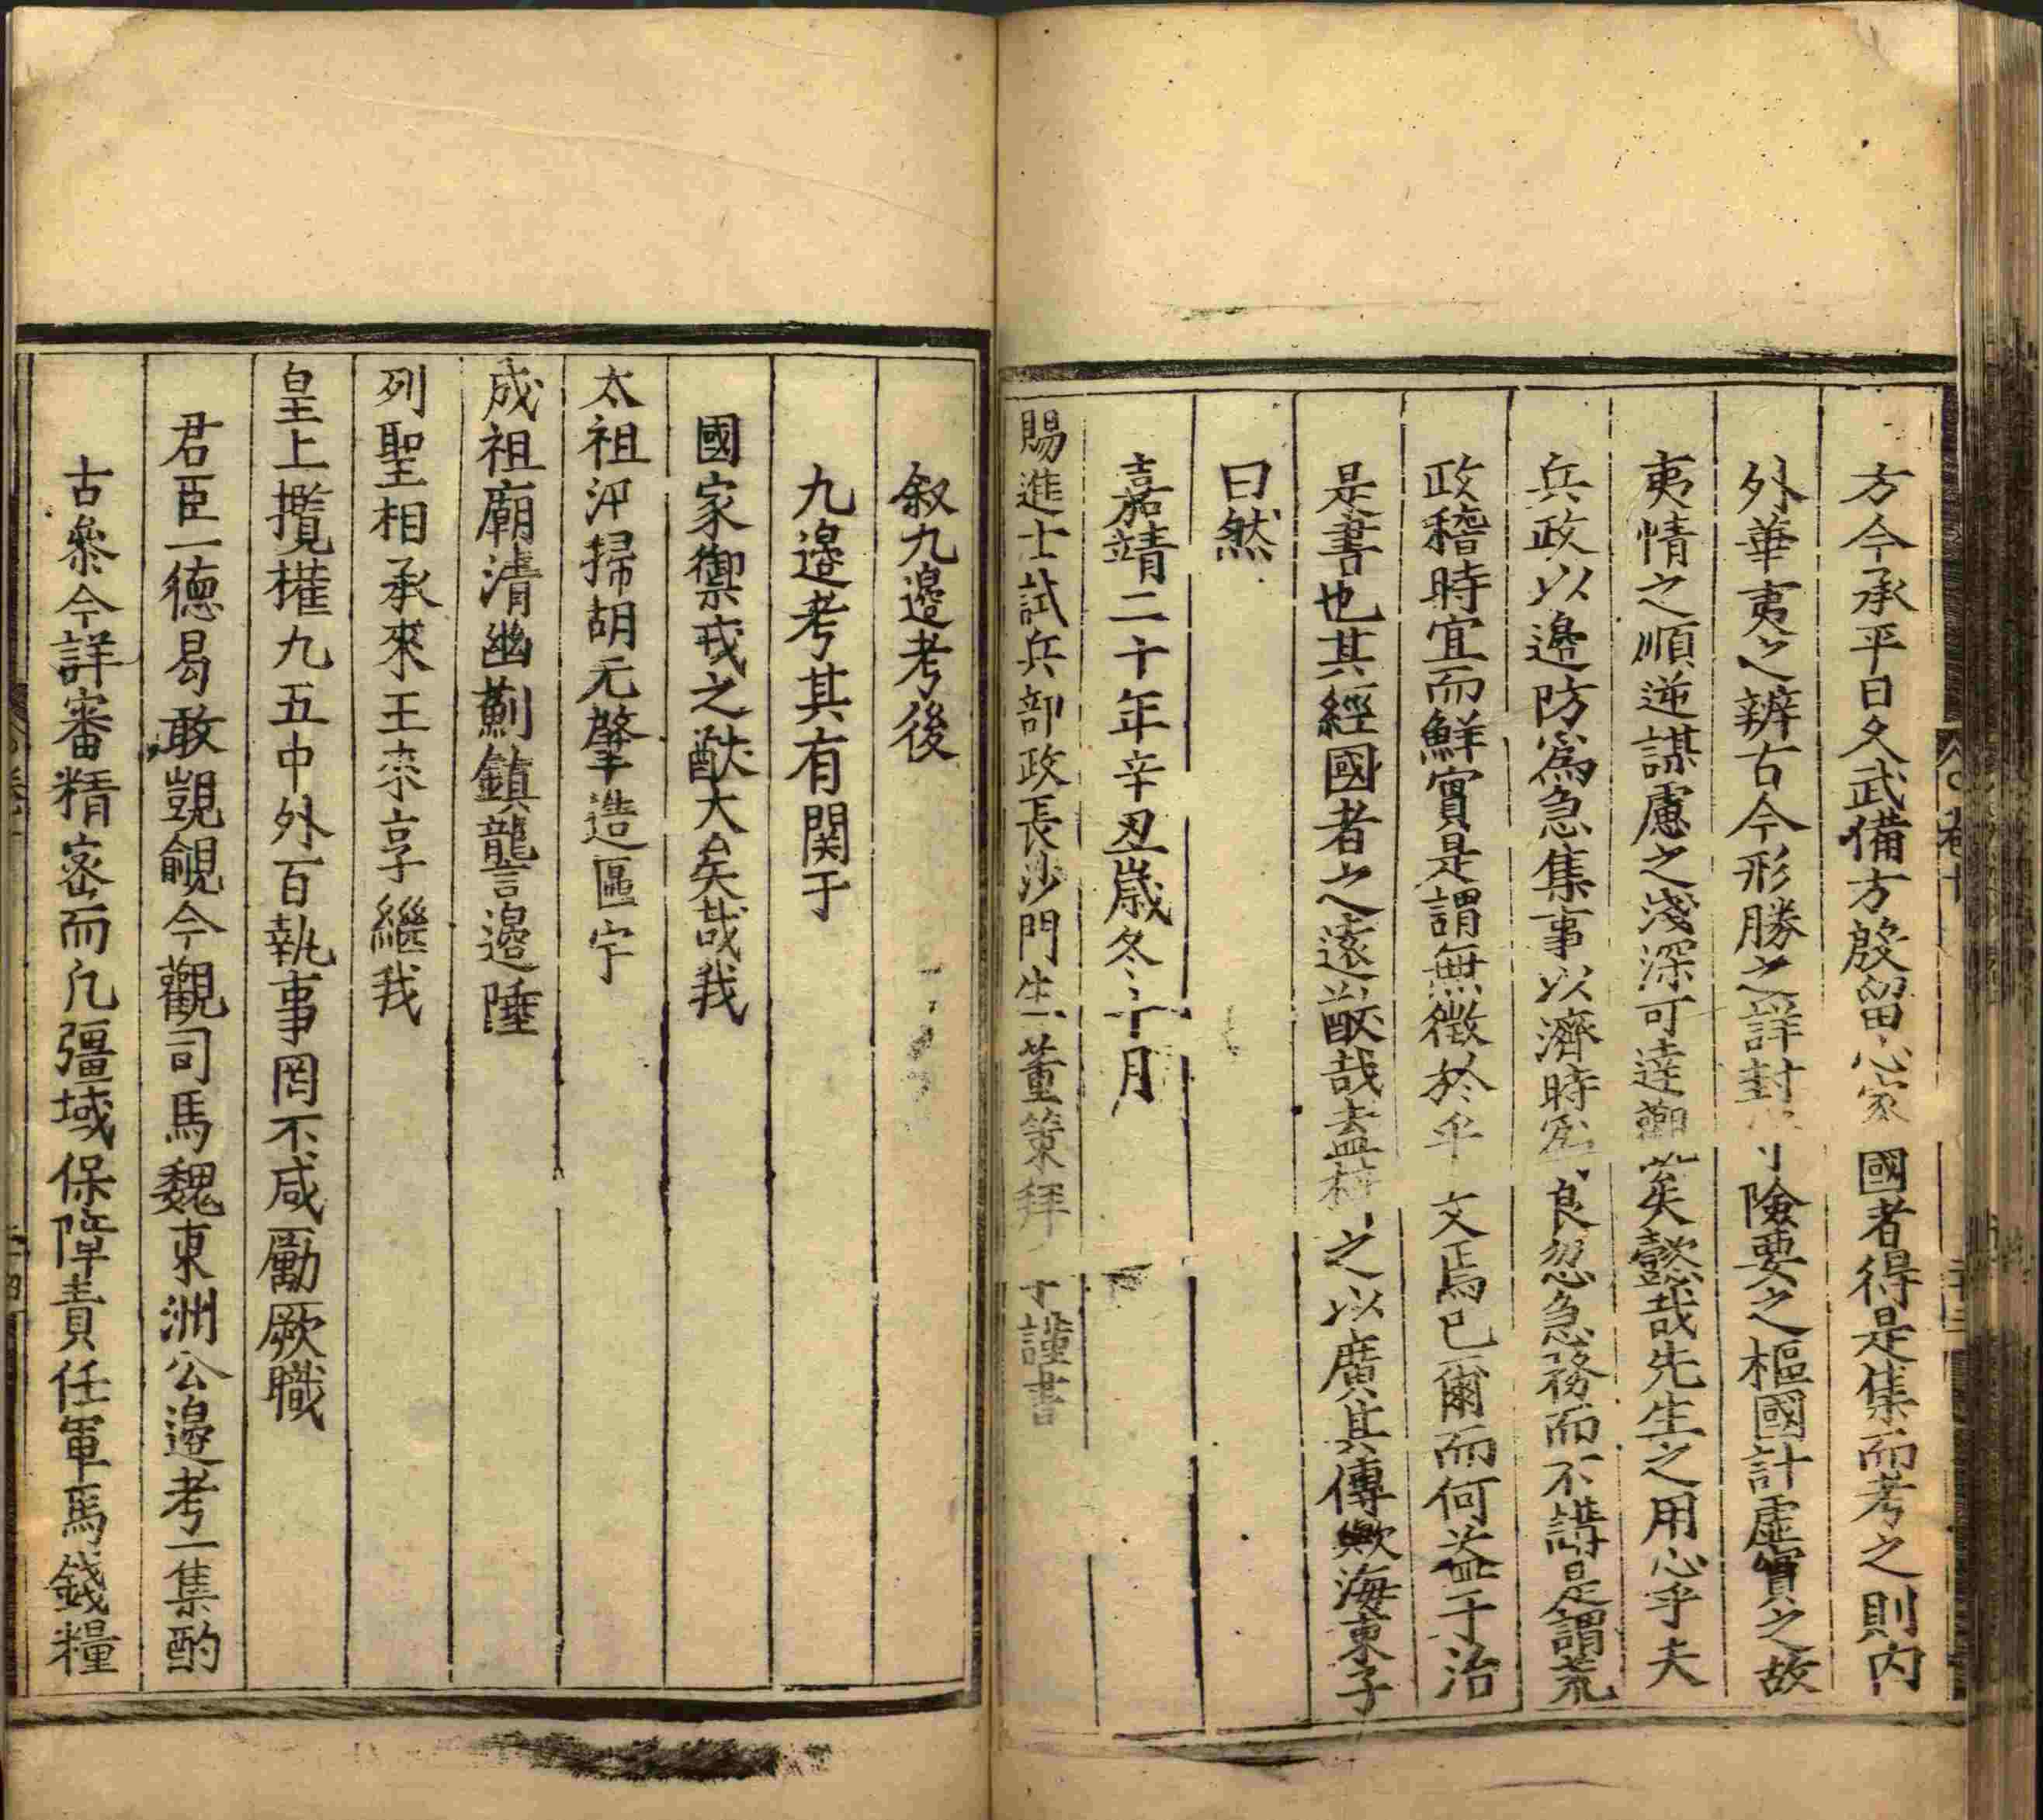 方今承平日久武備方殷留心家國者得是集而考之則內
外華夷之辨古今形勝之詳封險要之樞國計虛實之故
夷情之順逆謀慮之淺深可達觀矣懿哉先生之用心乎夫
兵政以邊防為急集事以濟時為良忽急務而不講是謂荒
政稽時宜而鮮實是謂無徵於乎文焉已爾而何益于治
是書也其經國者之遠猷哉盍梓之以廣其傳歟海東子
曰然
嘉靖二十年辛丑歲冬十月
賜進士試兵部政長沙門生董策拜手謹書
叙九邊考後
九邊考其有関于
國家禦戎之猷大矣哉我
太祖汛掃胡元肇造區宇
成祖廟清幽薊鎮讋邊陲
列聖相承來王來享繼我
皇上攬權九五中外百執事罔不咸勵厥職
君臣一德曷敢覬覦今觀司馬魏東洲公邊考一集酌
古參今詳審精密而凡彊域保障責任軍馬錢糧